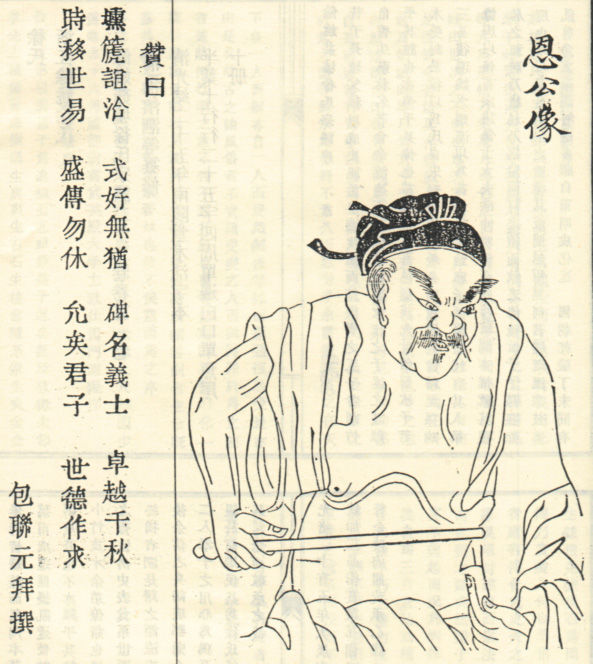 恩公像
贊曰
壎篪誼洽　式好無猶　碑名義士　卓越千秋
時移世易　盛傳勿休　允矣君子　世德作求
包聯元拜撰